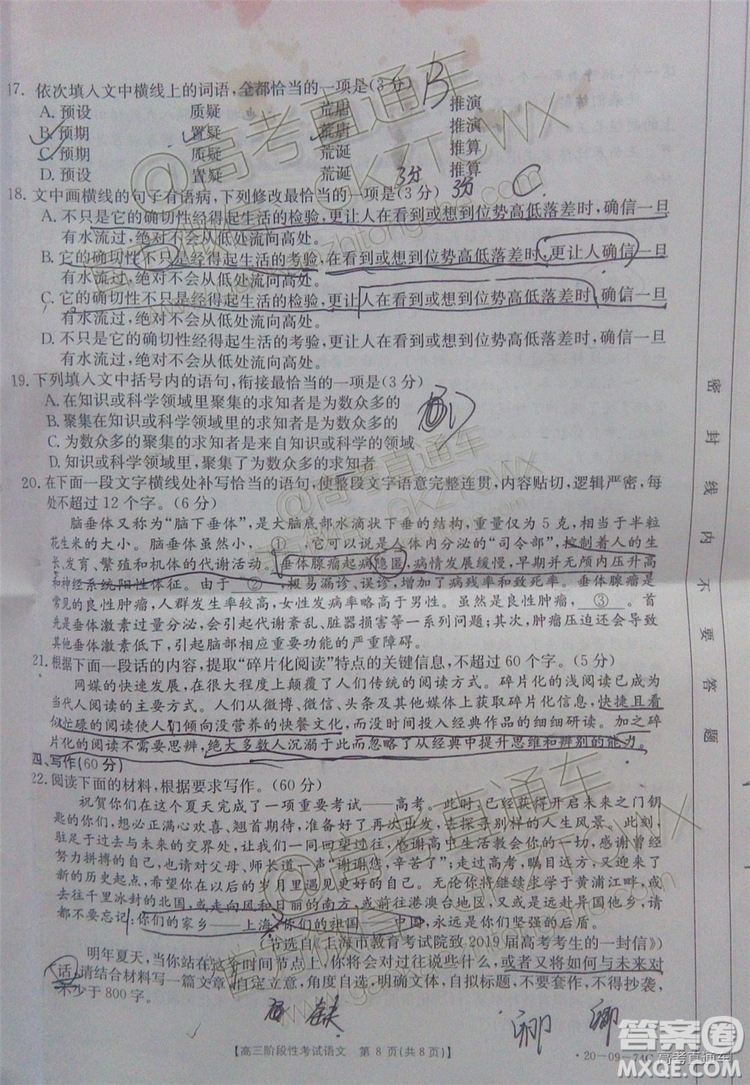 17. 依次填入文中横线上的词语,全都恰当的一项是(3分) B
A. 预设 质疑 荒唐 推演
B. 预期 置疑 荒唐 推演
C. 预期 质疑 荒诞 推算
D. 预设 置疑 荒诞 推算
3分 3分
18. 文中画横线的句子有语病,下列修改最恰当的一项是(3分) C
A. 不只是它的确切性经得起生活的检验,更让人在看到或想到位势高低落差时,确信一旦
有水流过,绝对不会从低处流向高处。
B. 它的确切性不只是经得起生活的考验,在看到或想到位势高低落差时,更让人确信一旦
有水流过,绝对不会从低处流向高处。
C. 它的确切性不只是经得起生活的检验,更让人在看到或想到位势高低落差时,确信一旦
有水流过,绝对不会从低处流向高处。
D. 不只是它的确切性经得起生活的考验,在看到或想到位势高低落差时,更让人确信一旦
有水流过,绝对不会从低处流向高处。
19. 下列填入文中括号内的语句,衔接最恰当的一项是(3分)
A. 在知识或科学领域里聚集的求知者是为数众多的
B. 在知识或科学领域里聚集的求知者为数众多
C. 为数众多的聚集的求知者是来自知识或科学的领域
D. 知识或科学领域里,聚集了为数众多的求知者
20. 在下面一段文字横线处补写恰当的语句,使整段文字语意完整连贯,内容贴切,逻辑严密,每
处不超过12个字。(6分)
脑垂体又称为“脑下垂体”,是大脑底部水滴状下垂的结构,重量仅为5克,相当于半粒
花生米的大小。脑垂体虽然小,①,它可以说是人体内分泌的“司令部”,控制着人的生
长发育、繁殖和机体的代谢活动。垂体腺瘤起病隐匿,病情发展缓慢,早期并无颅内高压
和神经系统阳性体征。由于②,极易漏诊、误诊,增加了病残率和致死率。垂体腺瘤是
常见的良性肿瘤,人群发生率较高,女性发病率略高于男性。虽然是良性肿瘤,③,但
是垂体激素过量分泌,会引起代谢紊乱,脏器损害等一系列症状。另外,肿瘤压迫会使其他
垂体激素低下,引起脑部相应靶腺的功能低下,严重影响患者的生活质量。
21. 根据下面一段话的内容,提取“碎片化阅读”特点的关键信息,不超过60个字。(5分)
网媒的快速发展,在很大程度上颠覆了人们传统的阅读方式。碎片化的浅阅读已成为
当代人阅读的主要方式。人们从微博、微信、头条及其他媒体上获取大量的信息,快捷且看
似忙碌的阅读使人们倾向没营养的快餐文化,而没时间阅读经典作品的细细研读。加之碎
片化的阅读不需要思辨,绝大多数人沉溺于此而忽略了从经典中提升思维和辨别的能力。
四、写作(60分)
22. 阅读下面的材料,根据要求写作。(60分)
祝贺你们在这个夏天完成了一项重要考试——高考。你们已经获得开启未来之门钥
匙的你们,想必正满心欢喜、翘首期待,准备好了再次出发,去探寻别样的人生风景。
站在过去与未来的交界处,让我们一起回望来时路,感谢高中生活教会你们成长,感谢
努力拼搏的自己,也请对父母、师长道一声“谢谢您,辛苦了”;走过高考,你们又将站在一个
新的历史起点,希望你们奋斗以成、勇往直前。无论你们将继续求学于黄浦江畔,或是去体
验北国千里冰封的壮丽,或走向风和日丽的南方,或前往港澳台地区,或是远赴异国他乡,请
都不要忘记,你们的家乡——上海,你们的祖国——中国,永远是你们坚强的后盾。
(节选自《上海市教育考试院致2019届高考考生的一封信》)
明年夏天,当你站在这个时间节点上,你会对过往说些什么,或者又将如何与未来对
话,请结合材料写一篇文章,自定立意,角度自选,明确文体,自拟标题,不要套作,不得抄袭,
不少于800字。
【高三阶段性考试语文 第8页(共8页)】 ·20-09-74C·
密封线内不要答题
@高考直通车
GKZTCWX
答案圈
MXQE.COM
高考直通车